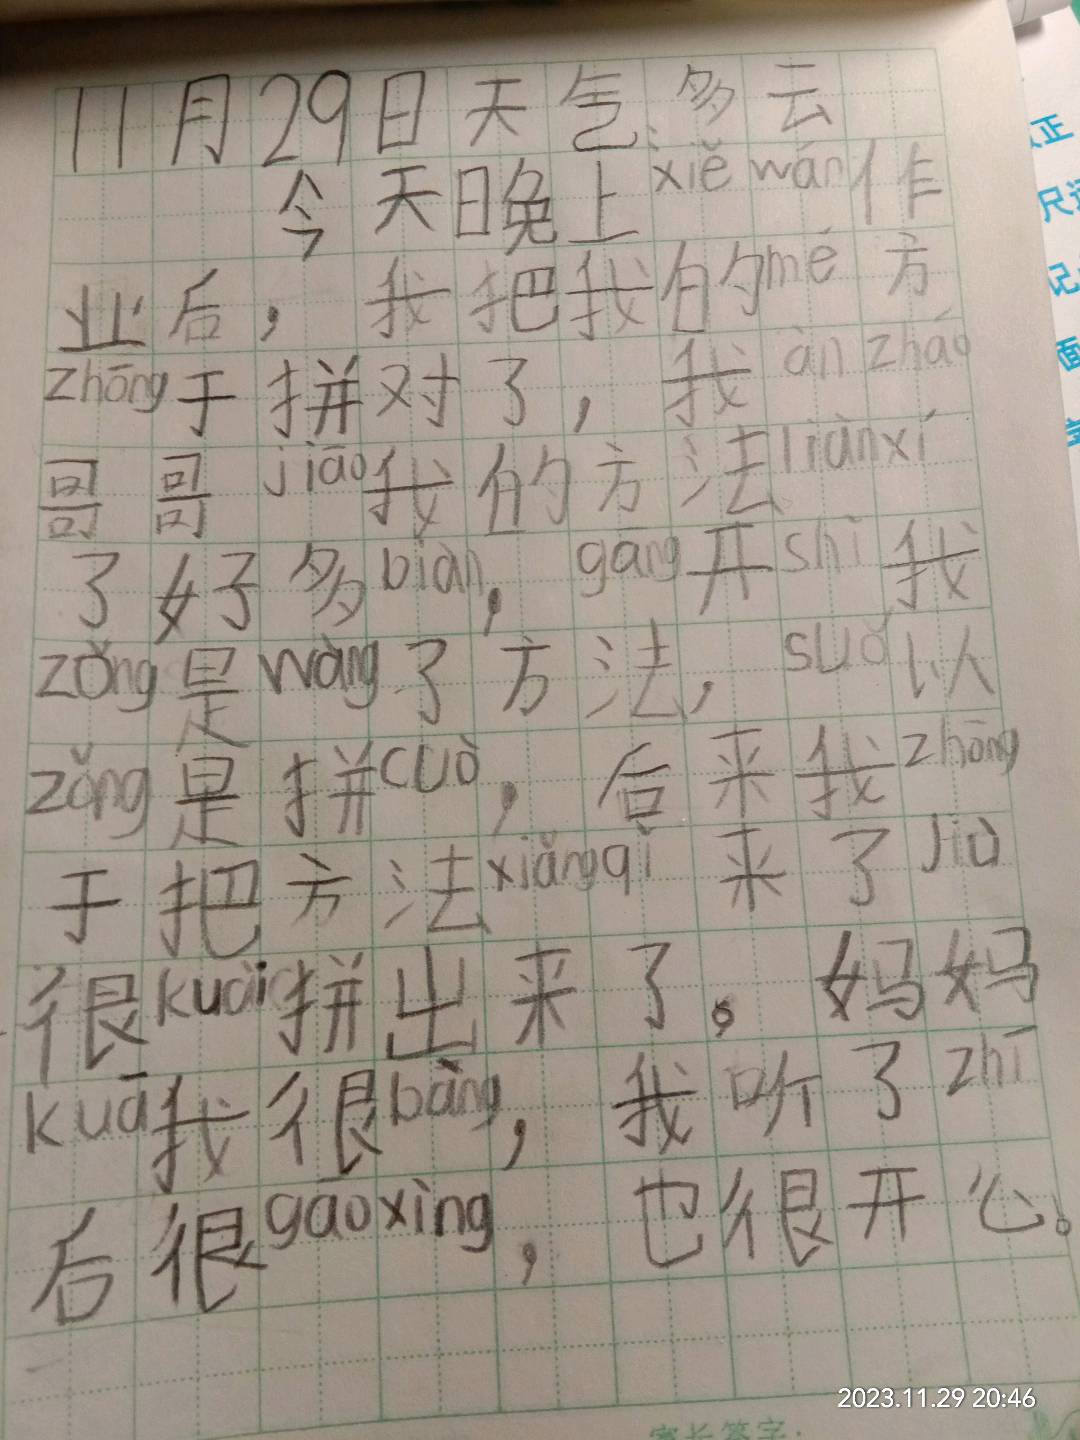 11月29日天气:多云
今天晚上xiě wán作
业后，我把我的mé方
zhōng于拼对了，我àn zháo
哥哥jiāo我的方法liànxí
了好多biàn，gāng开shǐ我
zǒng是wàng了方法，suǒ以
zǒng是拼cuò，后来我zhōng
于把方法xiǎngqǐ来了jiù
很kuài拼出来了。妈妈
kuā我很bàng，我听了zhī
后很gāoxìng，也很开心。
正
记
面
家长签字:
2023.11.29 20:46